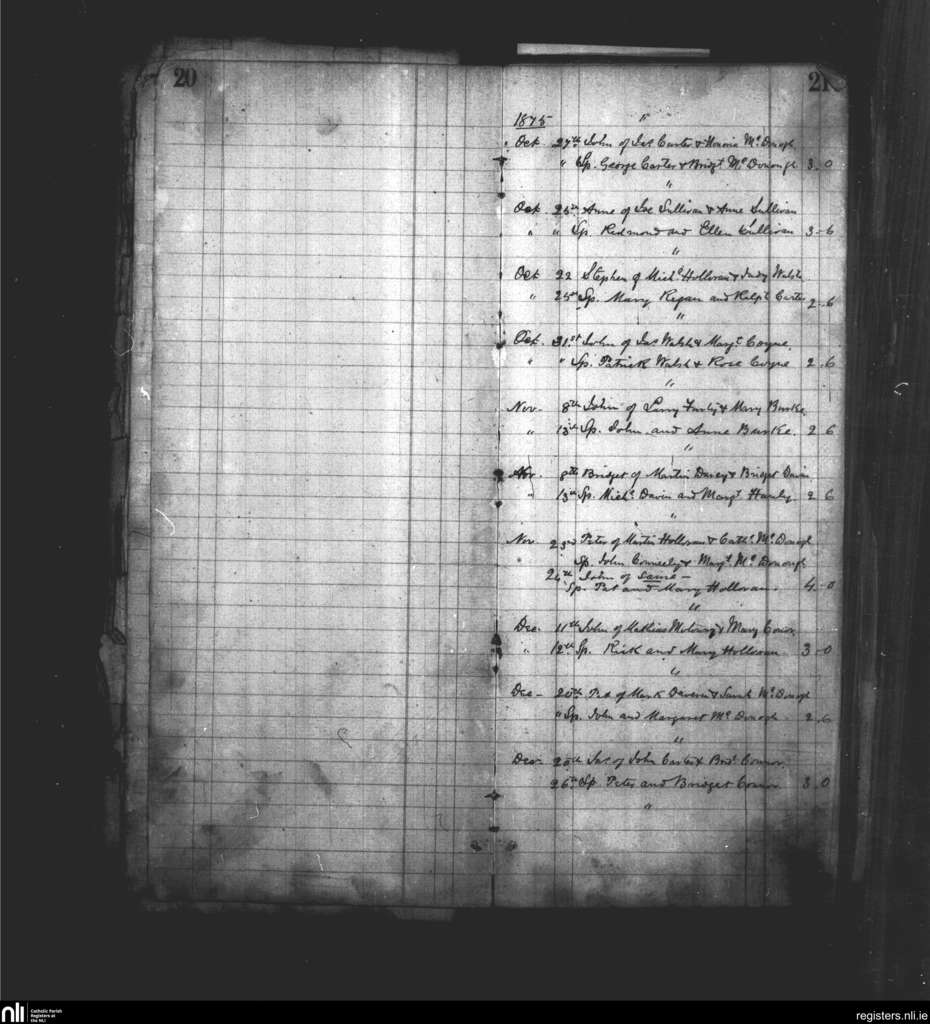 20
21
1875 "
" Oct. 27th John of Jas Carter & Honoria Mc Donogh
" Sp. George Carter & Bridgt. Mc Donough 3-0
"
Oct. 25th Anne of Jas Sullivan & Anne Sullivan
" " Sp. Redmond and Ellen Sullivan 3-6
"
Oct 22 Stephen of Michl Holloran & Judy Walsh
" 25th Sp. Mary Regan and Carter 2-6
"
Oct. 31st John of Jas Walsh & Margt. Coyne.
" " Sp. Patrick Walsh & Rose Coyne 2.6
"
Nov. 8th John of & Mary Burke.
" 13th Sp. John and Anne Burke. 2 6
"
Nov. 8th Bridget of Martin Davey & Bridget
" 13th Sp. Michl. Davin and Margt. 2 6
"
Nov 23rd Peter of Martin Holloran & Cath. Mc Donogh
" Sp. John Conneely & Margt. Mc Donough
24th John of same -
Sp. Pat and Mary Holloran. 4-0
"
Dec. 11th John of & Mary
" 12th Sp. and Mary Holloran 3-0
"
Dec - 20th of Mark & Sarah Mc Donogh
" Sp. John and Margaret Mc Donogh 2.6
"
Decr 20th Jas of John Carter & Bridt. Connor.
26th Sp Peter and Bridget Connor 3 0
"
nli
Catholic Parish
Registers at
the NLI
registers.nli.ie